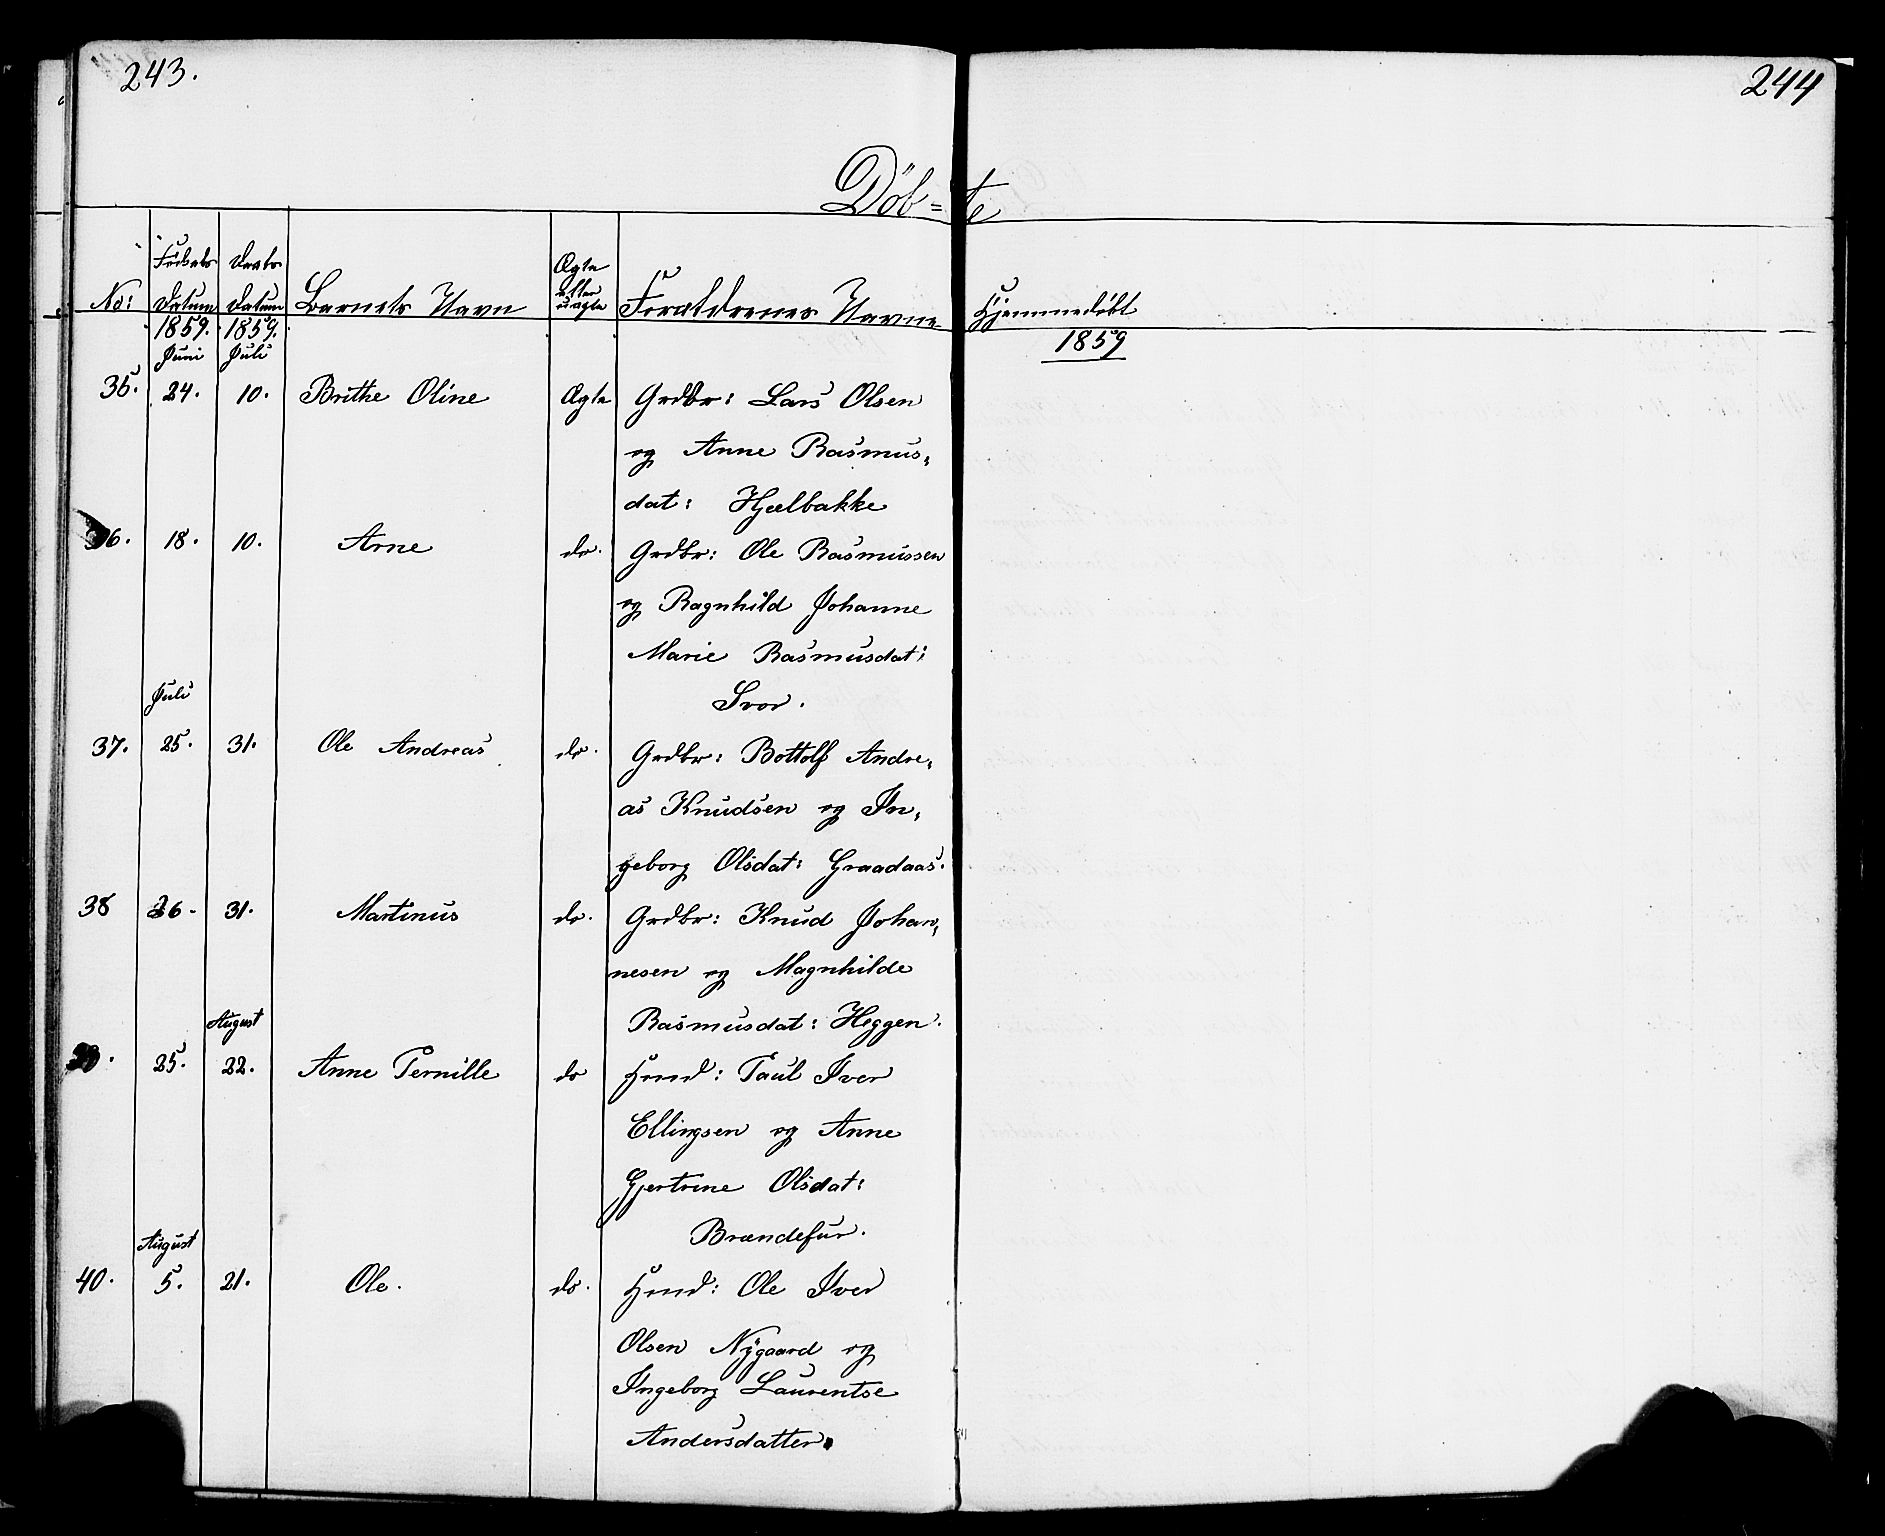 243.
244
Döb=te
No: Fødsels Datum Daabs Datum Barnets Navn Ægte eller uægte Forældrenes Navne Hjemmedøbt
1859. 1859. 1859
Juni Juli
35. 24. 10. Brithe Oline Ægte Grdbr: Lars Olsen
og Anne Rasmus,
dat: Hjelbakke
36. 18. 10. Arne do. Grdbr: Ole Rasmussen
og Ragnhild Johanne
Marie Rasmusdat:
Juli Svor.
37. 25. 31. Ole Andreas do. Grdbr: Bottolf Andre,
as Knudsen og In,
geborg Olsdat: Graadaas.
38 26. 31. Martinus do. Grdbr: Knud Johan,
nesen og Magnhilde
August Rasmusdat: Heggen.
39. 25. 22. Anne Pernille do Hmd: Paul Iver
Ellingsen og Anne
Gjertrine Olsdat:
August Brændefur.
40. 5. 21. Ole. do. Hmd: Ole Iver
Olsen Nÿgaard og
Ingeborg Laurentse
Andersdatter.